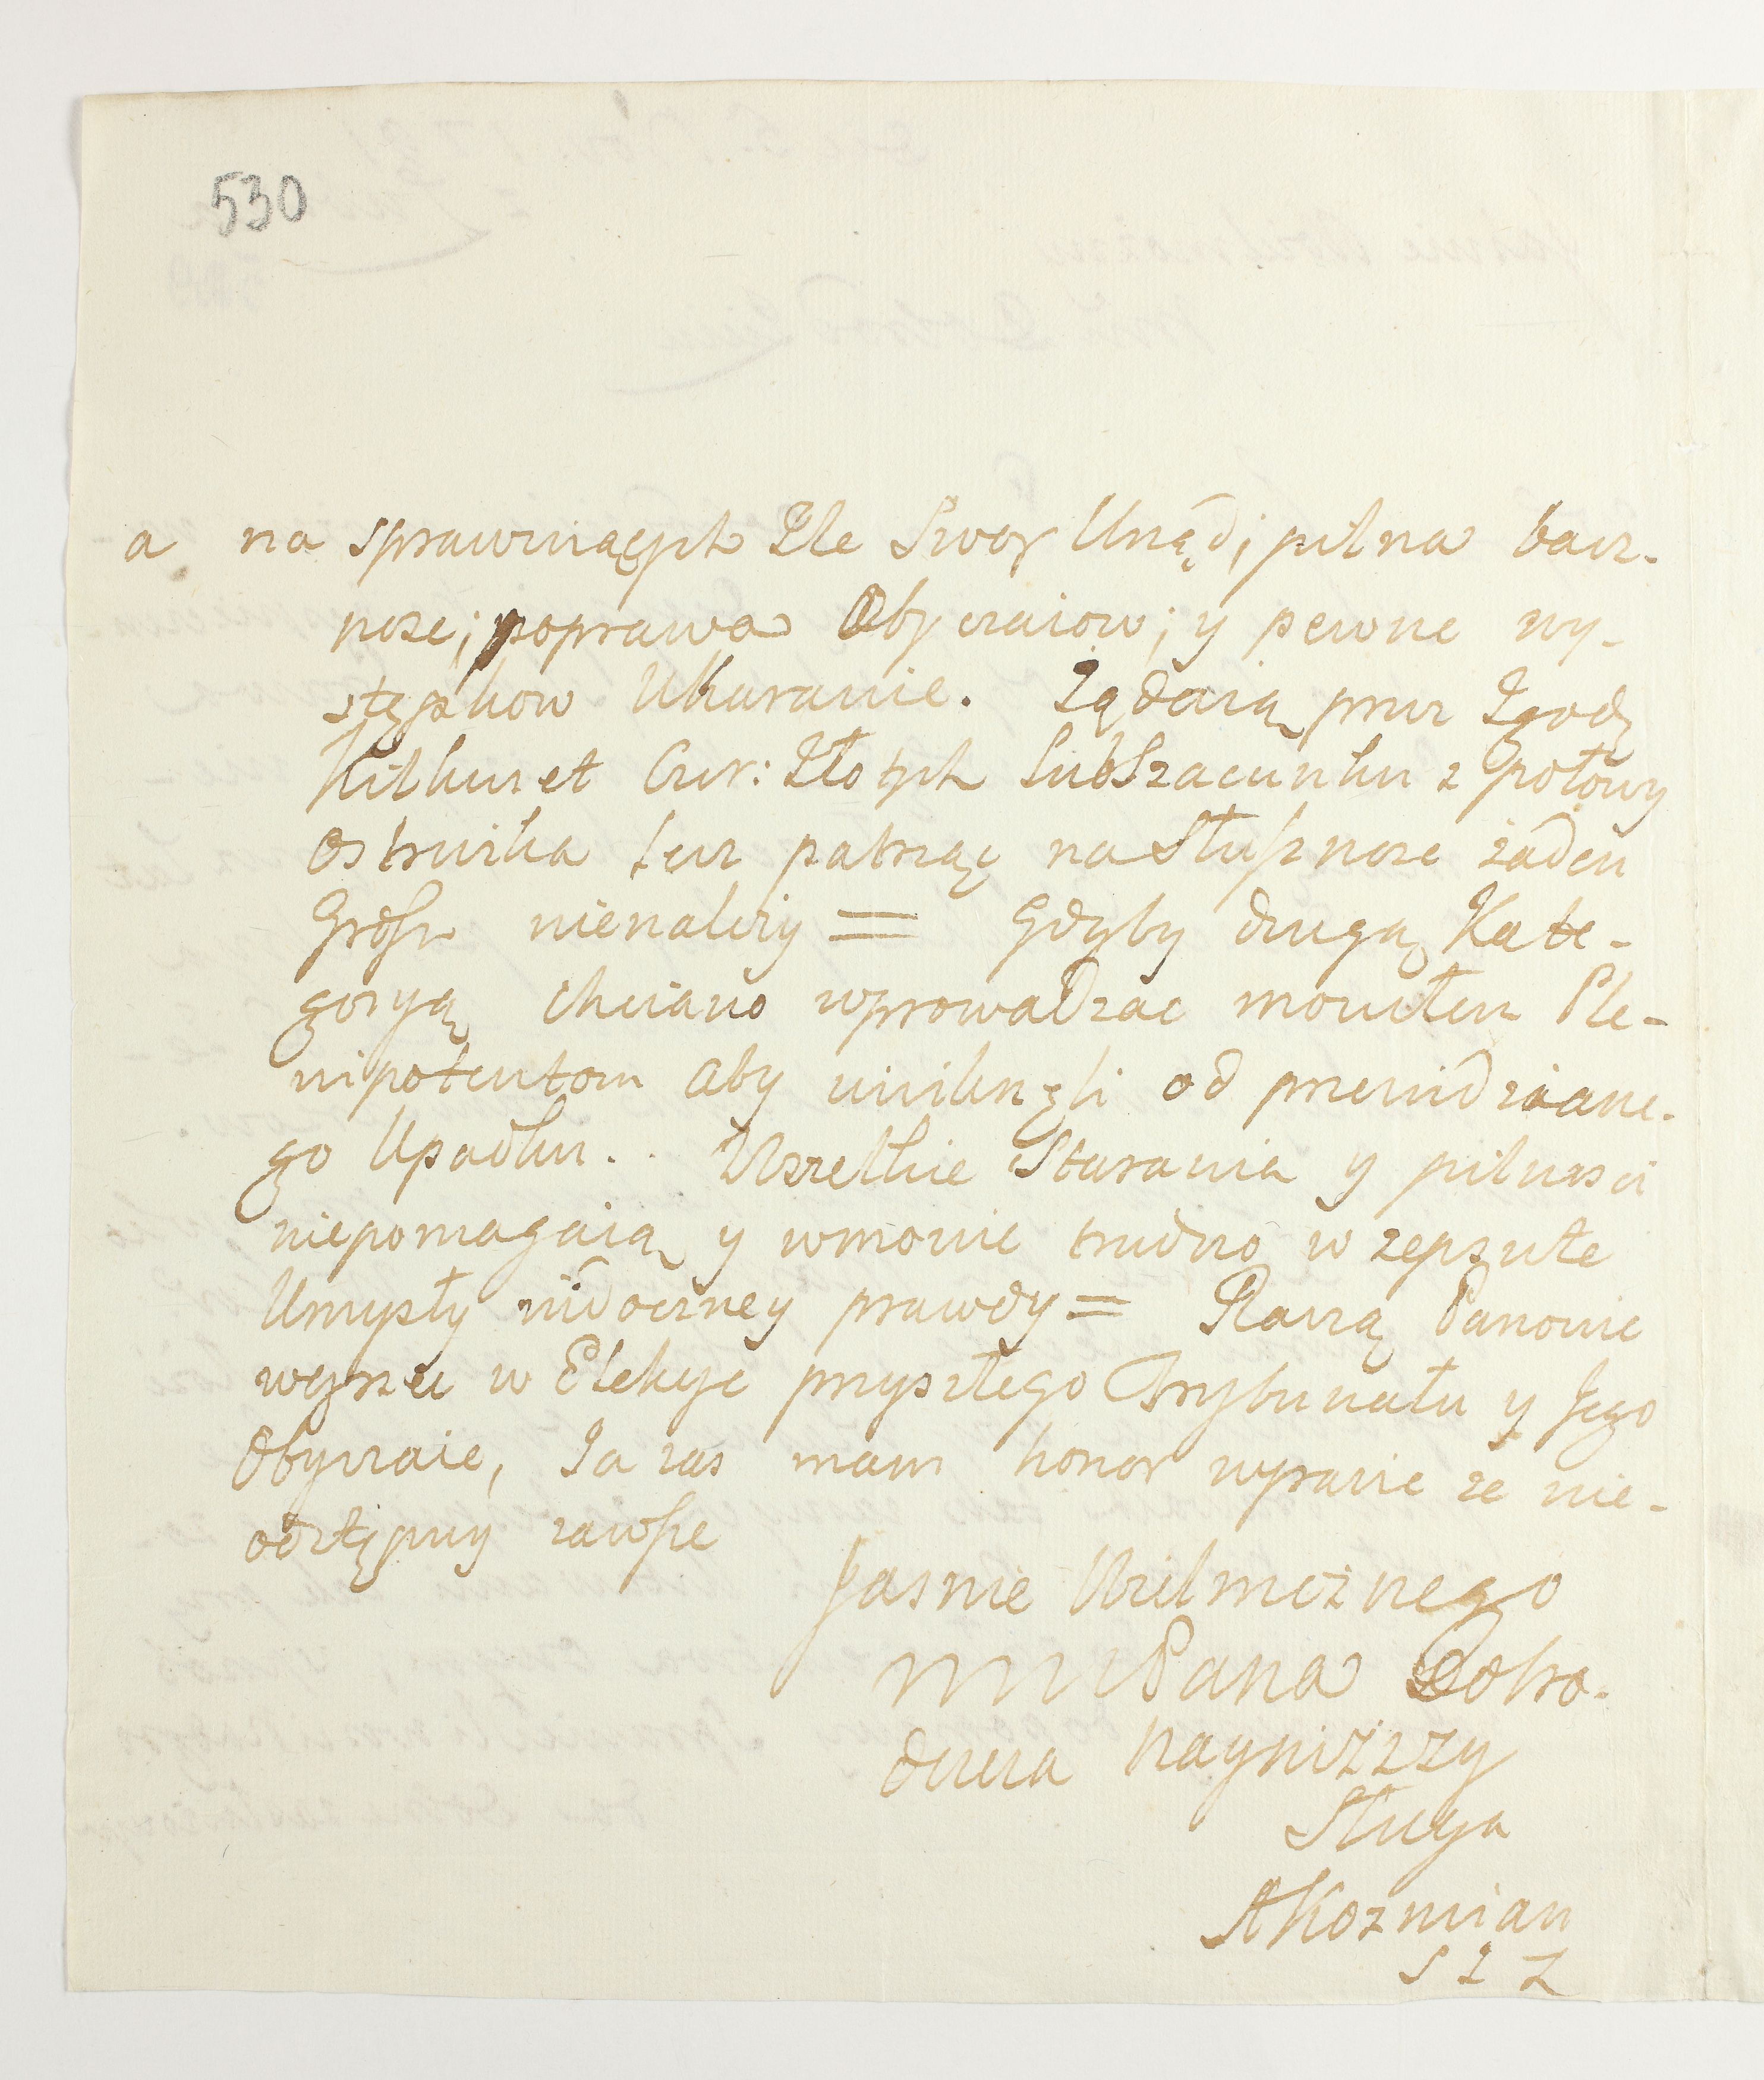 530
a na sprawuiących Zle Swoy Urząd; pilna bacz-
nosc; poprawa Obyczaiow; y pewne wy-
stępkow Ukaranie. Żądaią przez Zgodę
Kilkuset Czer: Złotych Sub Szacunku z połowy
Ostrwika lecz patrząc na Słusznosc żaden
Grosz nienależy = Gdyby drugą Kate-
goryą chciano wprowadzac mowiłem Ple-
nipotentom aby uniknęli od przewidziane-
go Upadku.. Wszelkie Starania y pilnosci
niepomagaią y wmowic trudno w zepsute
Umysły widoczney prawdy = Raczą Panowie
weyrzec w Elekcye przyszłego Trybunału y Jego
Obyczaie, Ja zas mam honor wyrazic ze nie-
odstępny zawsze
Jasnie Wielmożnego
WM Pana Dobro-
dzieia Nayniższy
Sługa
AKozmian
S Z L